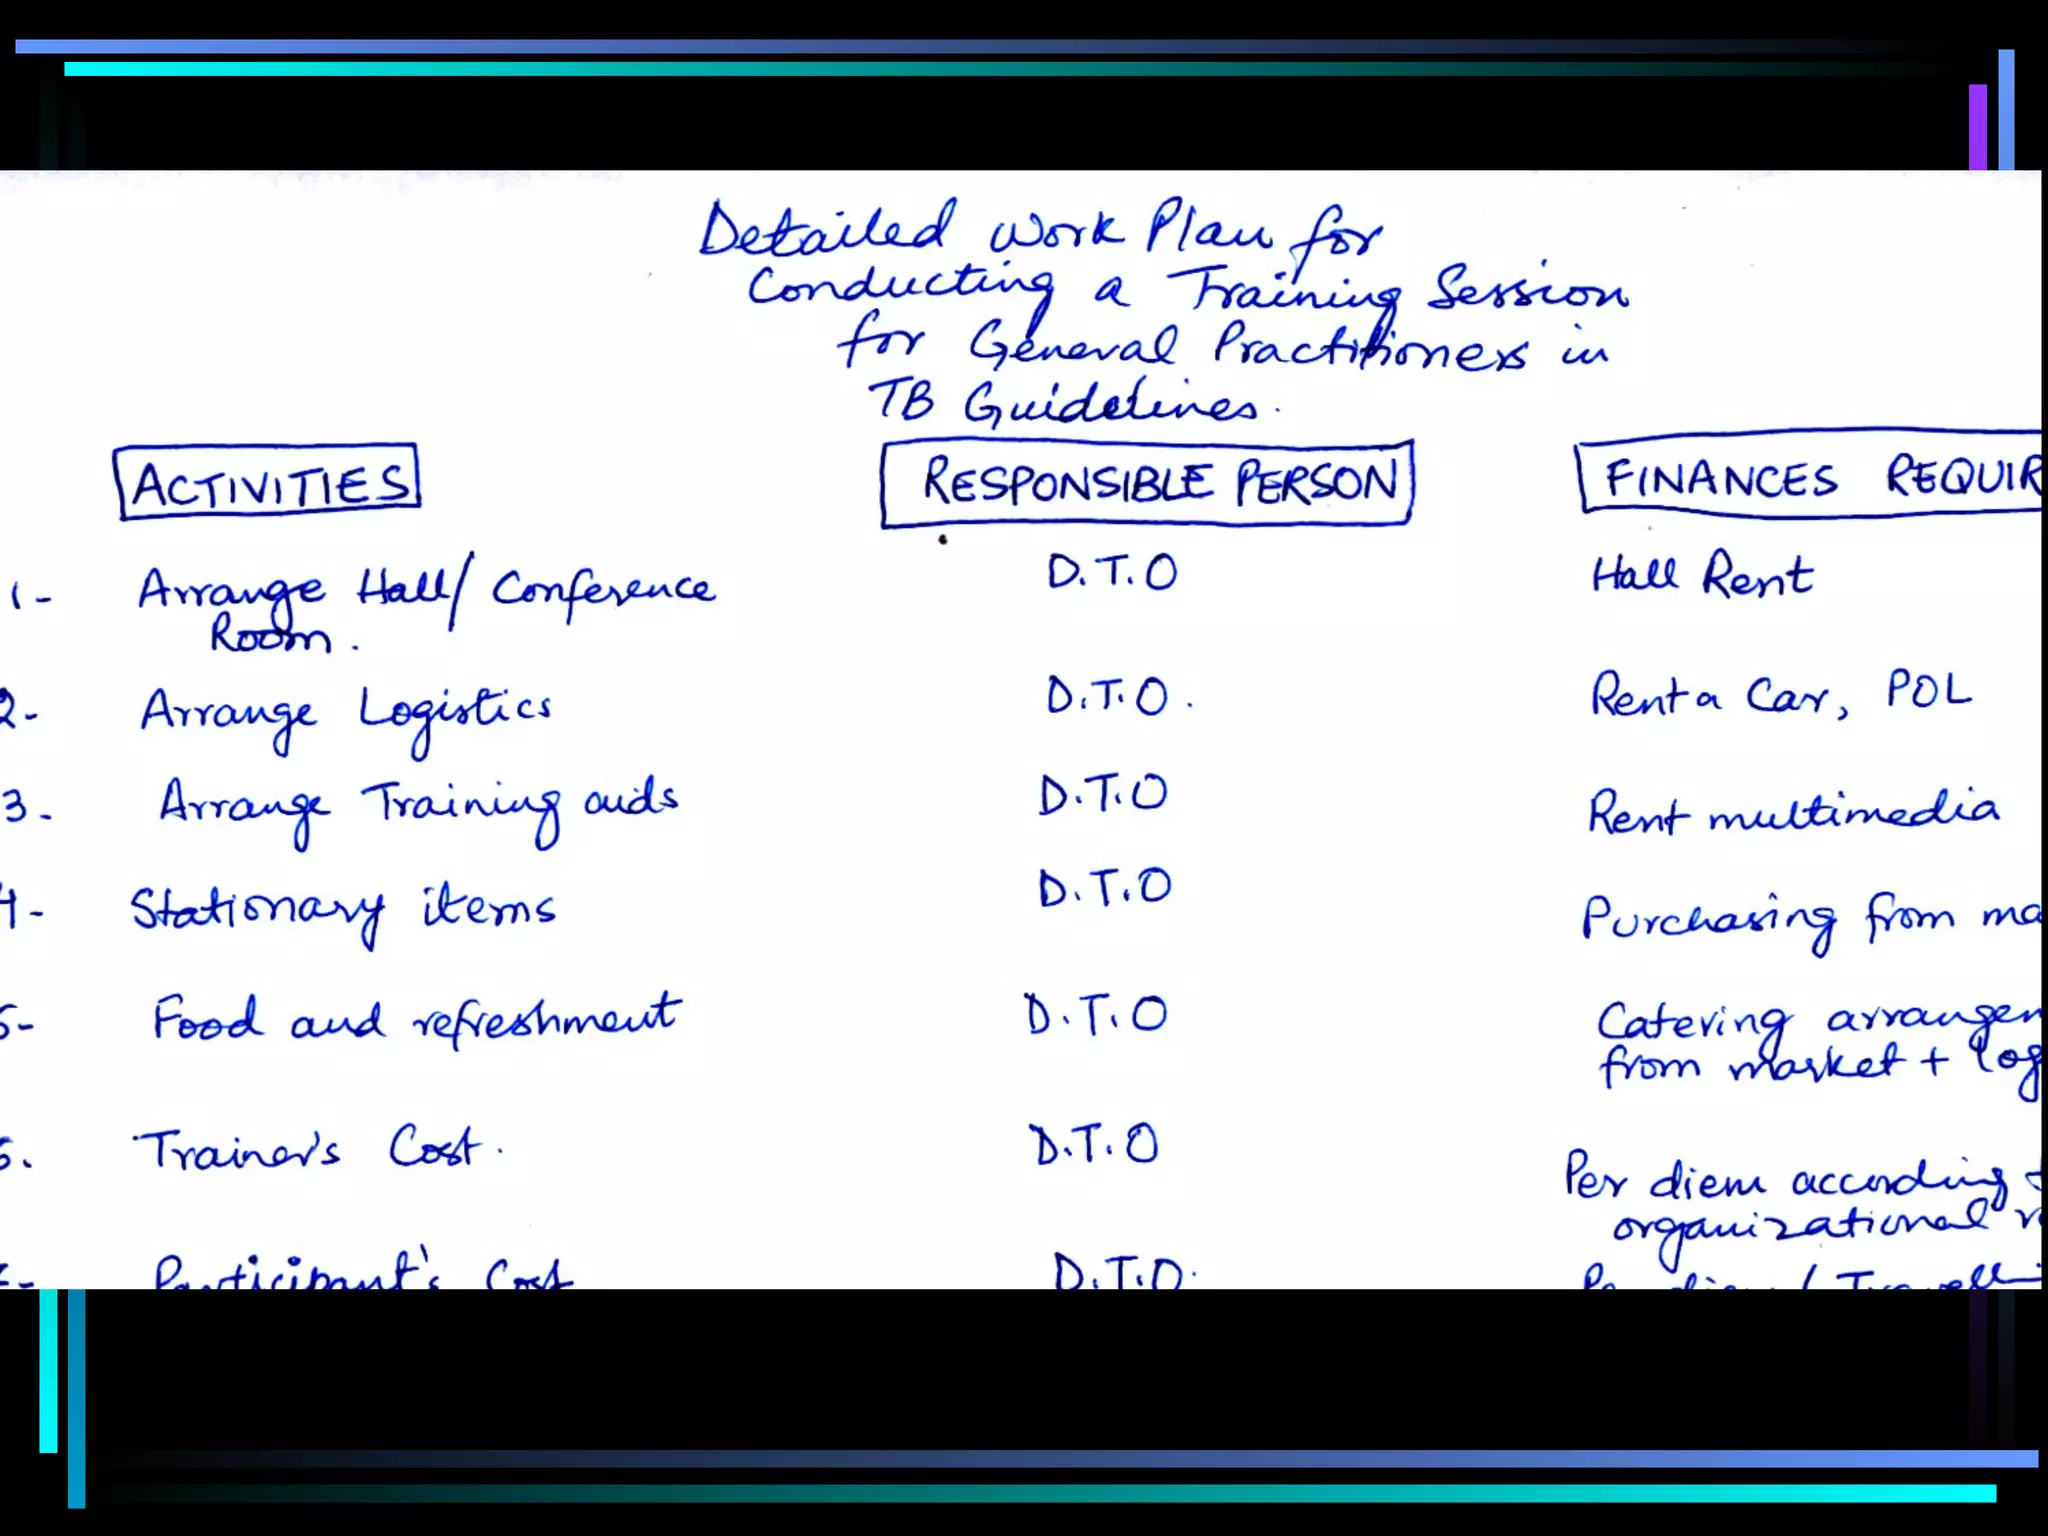 Detailed Work Plan for
Conducting a Training Session
for General Practitioners in
TB Guidelines.
ACTIVITIES RESPONSIBLE PERSON FINANCES REQUIR
1- Arrange Hall/ Conference D.T.O Hall Rent
Room.
2- Arrange Logistics D.T.O. Rent a Car, POL
3. Arrange Training aids D.T.O Rent multimedia
4- Stationary items D.T.O Purchasing from ma
5- Food and refreshment D.T.O Catering arrangem
from market + log
6. Trainer's Cost. D.T.O Per diem according
organizational r
Participant's Cost D.T.O. Per diem / Travelli